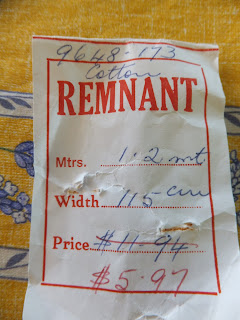 9648-173
Cotton
REMNANT
Mtrs. 1.2 mt
Width 115 cm
Price $11.94
$5.97